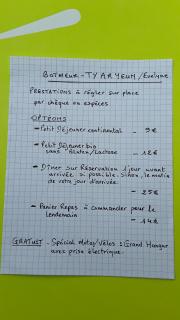 BOTMEUR - TY AR YEUN / Evelyne
PRESTATIONS à régler sur place
par chèque ou espèces
OPTIONS
- Petit Déjeuner continental - 9€
- Petit Déjeuner bio
sans Gluten/Lactose - 12€
- Dîner sur Réservation 1 jour avant
arrivée si possible. Sinon, le matin
de votre jour d'arrivée.
- 25€
- Panier Repas à commander pour le
lendemain
- 14€
GRATUIT - Spécial Motos/Vélos : Grand Hangar
avec prise électrique.